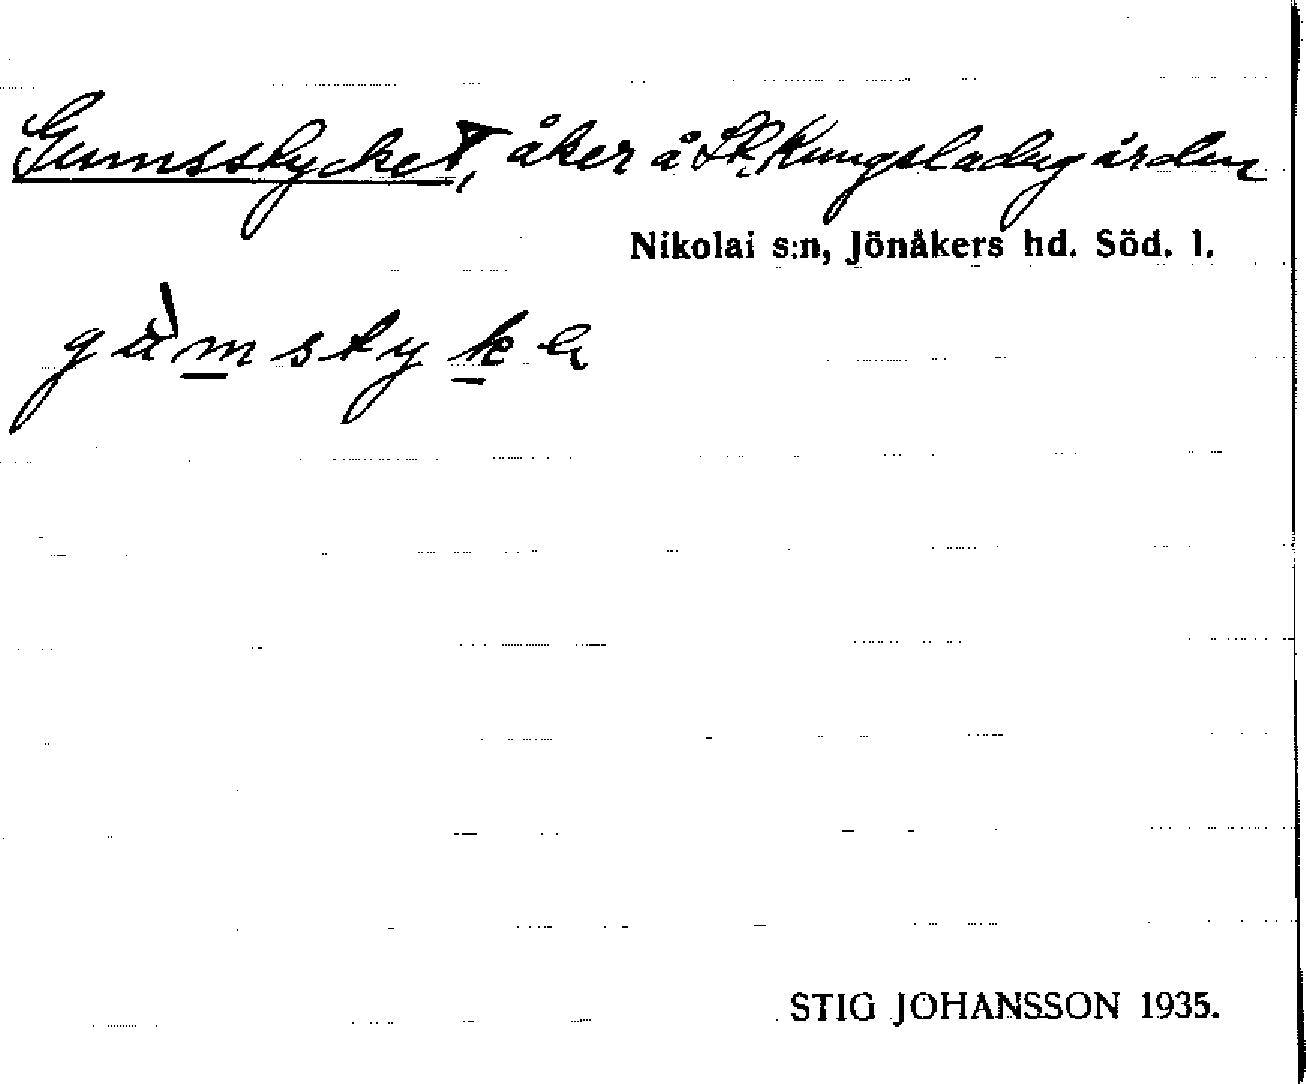 Gumsstycket, åker å St. Kungsladugården
Nikolai s:n, Jönåkers hd. Söd. l.
STIG JOHANSSON 1935.